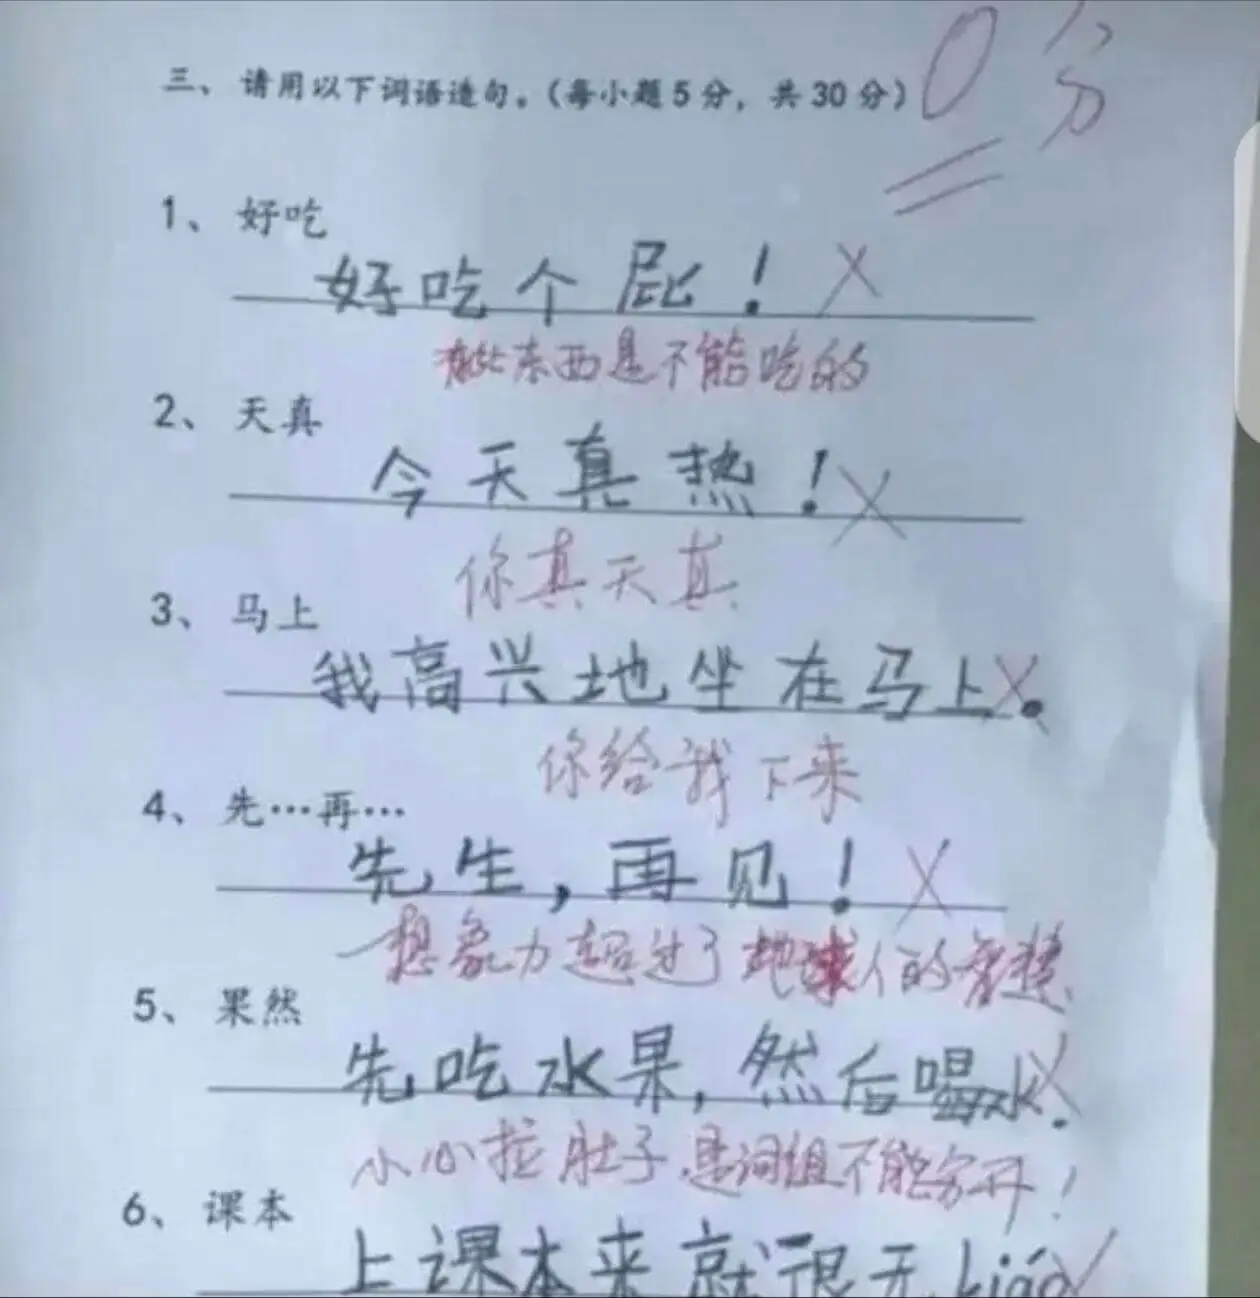 0分
三、请用以下词语造句。（每小题5分，共30分）
1、好吃
好吃个屁！ ×
有些东西是不能吃的
2、天真
今天真热！ ×
你真天真
3、马上
我高兴地坐在马上。 ×
你给我下来
4、先…再…
先生，再见！ ×
想象力超过了地球人的智慧
5、果然
先吃水果，然后喝水. ×
小心拉肚子,是词组不能分开！
6、课本
上课本来就很无liáo ×